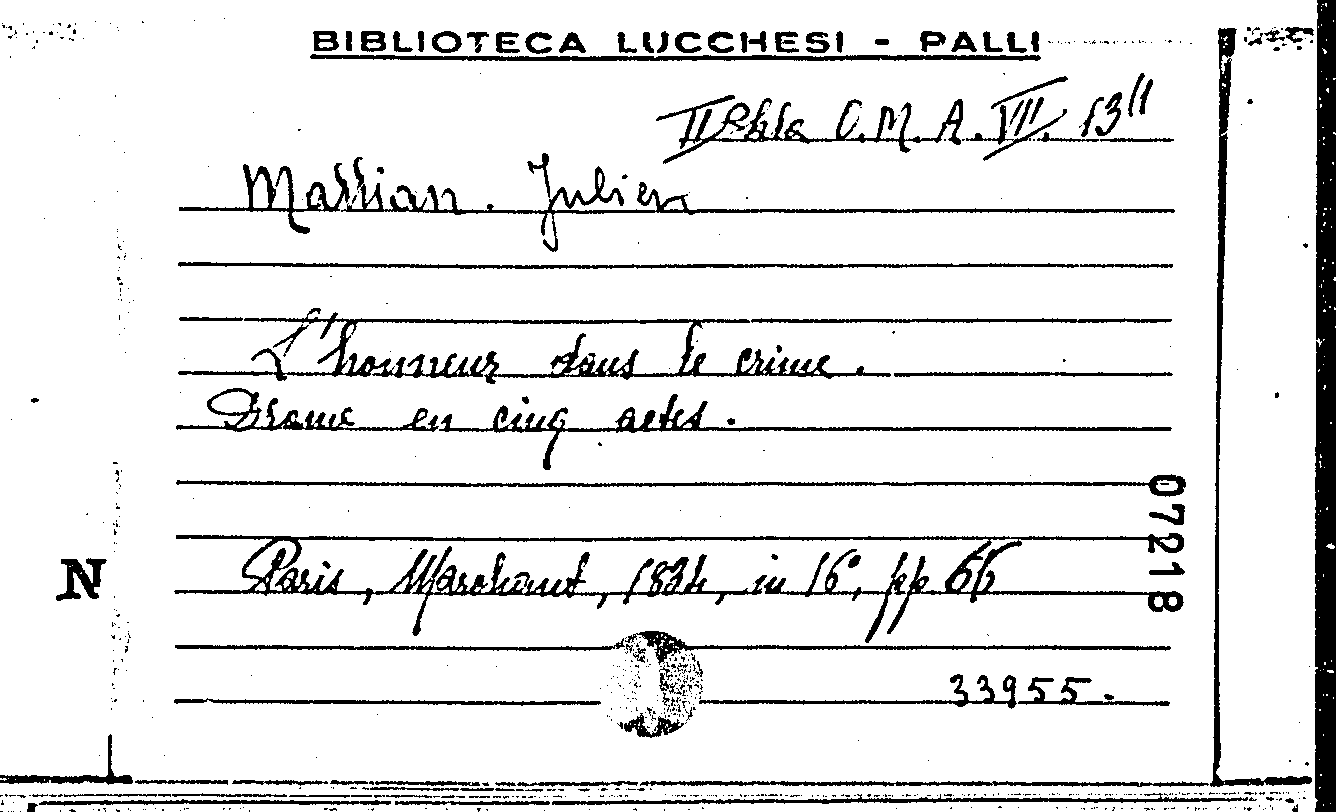 BIBLIOTECA LUCCHESI - PALLI
II Sala O. M. A. VII. 13 11
Mallian. Julien
L'honneur dans le crime.
Drame en cinq actes.
Paris, Marchant, 1834, in 16°, pp. 66
33955.
N
07218